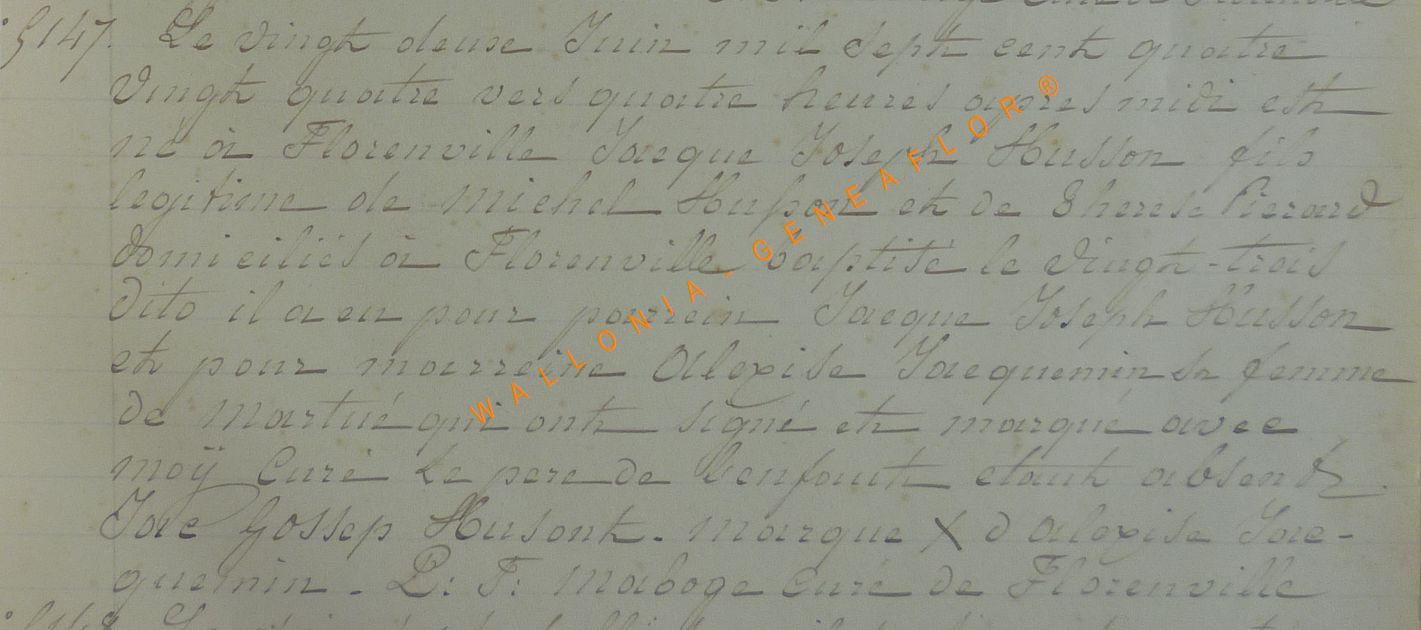 §147. Le vingt deuse Juin mil sept cent quatre
vingt quatre vers quatre heures apres midi est
né à Florenville Jacque Joseph Husson fils
legitime de Michel Husson et de Therese Pierard
domiciliés à Florenville baptisé le vingt-trois
dito il a eu pour parrein Jacque Joseph Husson
et pour marreine Alexise Jacquemin femme
de Martué qui ont signé et marqué avec
moÿ Curé Le pere de l'enfant etant absent
Jac Gossep Husont. Marque X d'Alexise Jac-
quemin. P: F: Maboge Curé de Florenville
WALLONIA-GENEAFLOR®